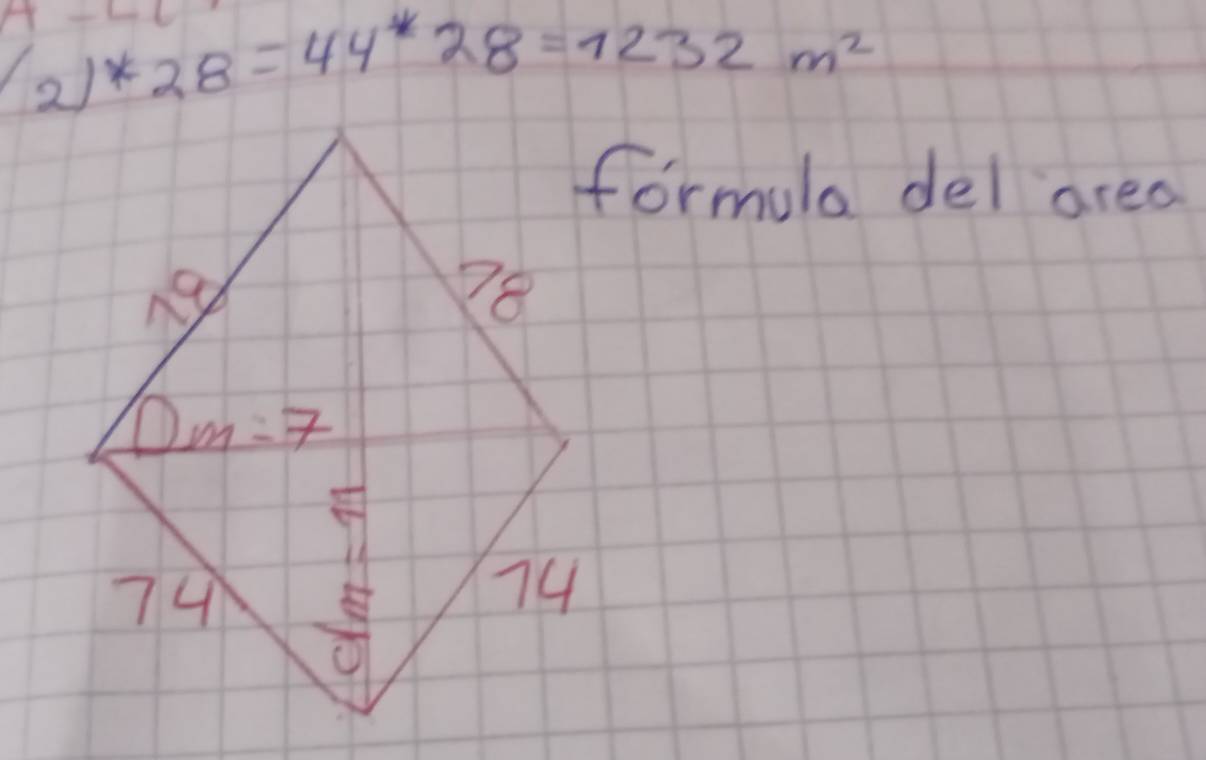 2)*28=44*28=1232 m²
fórmula del area
78
Dm=7
dm=11
74
14